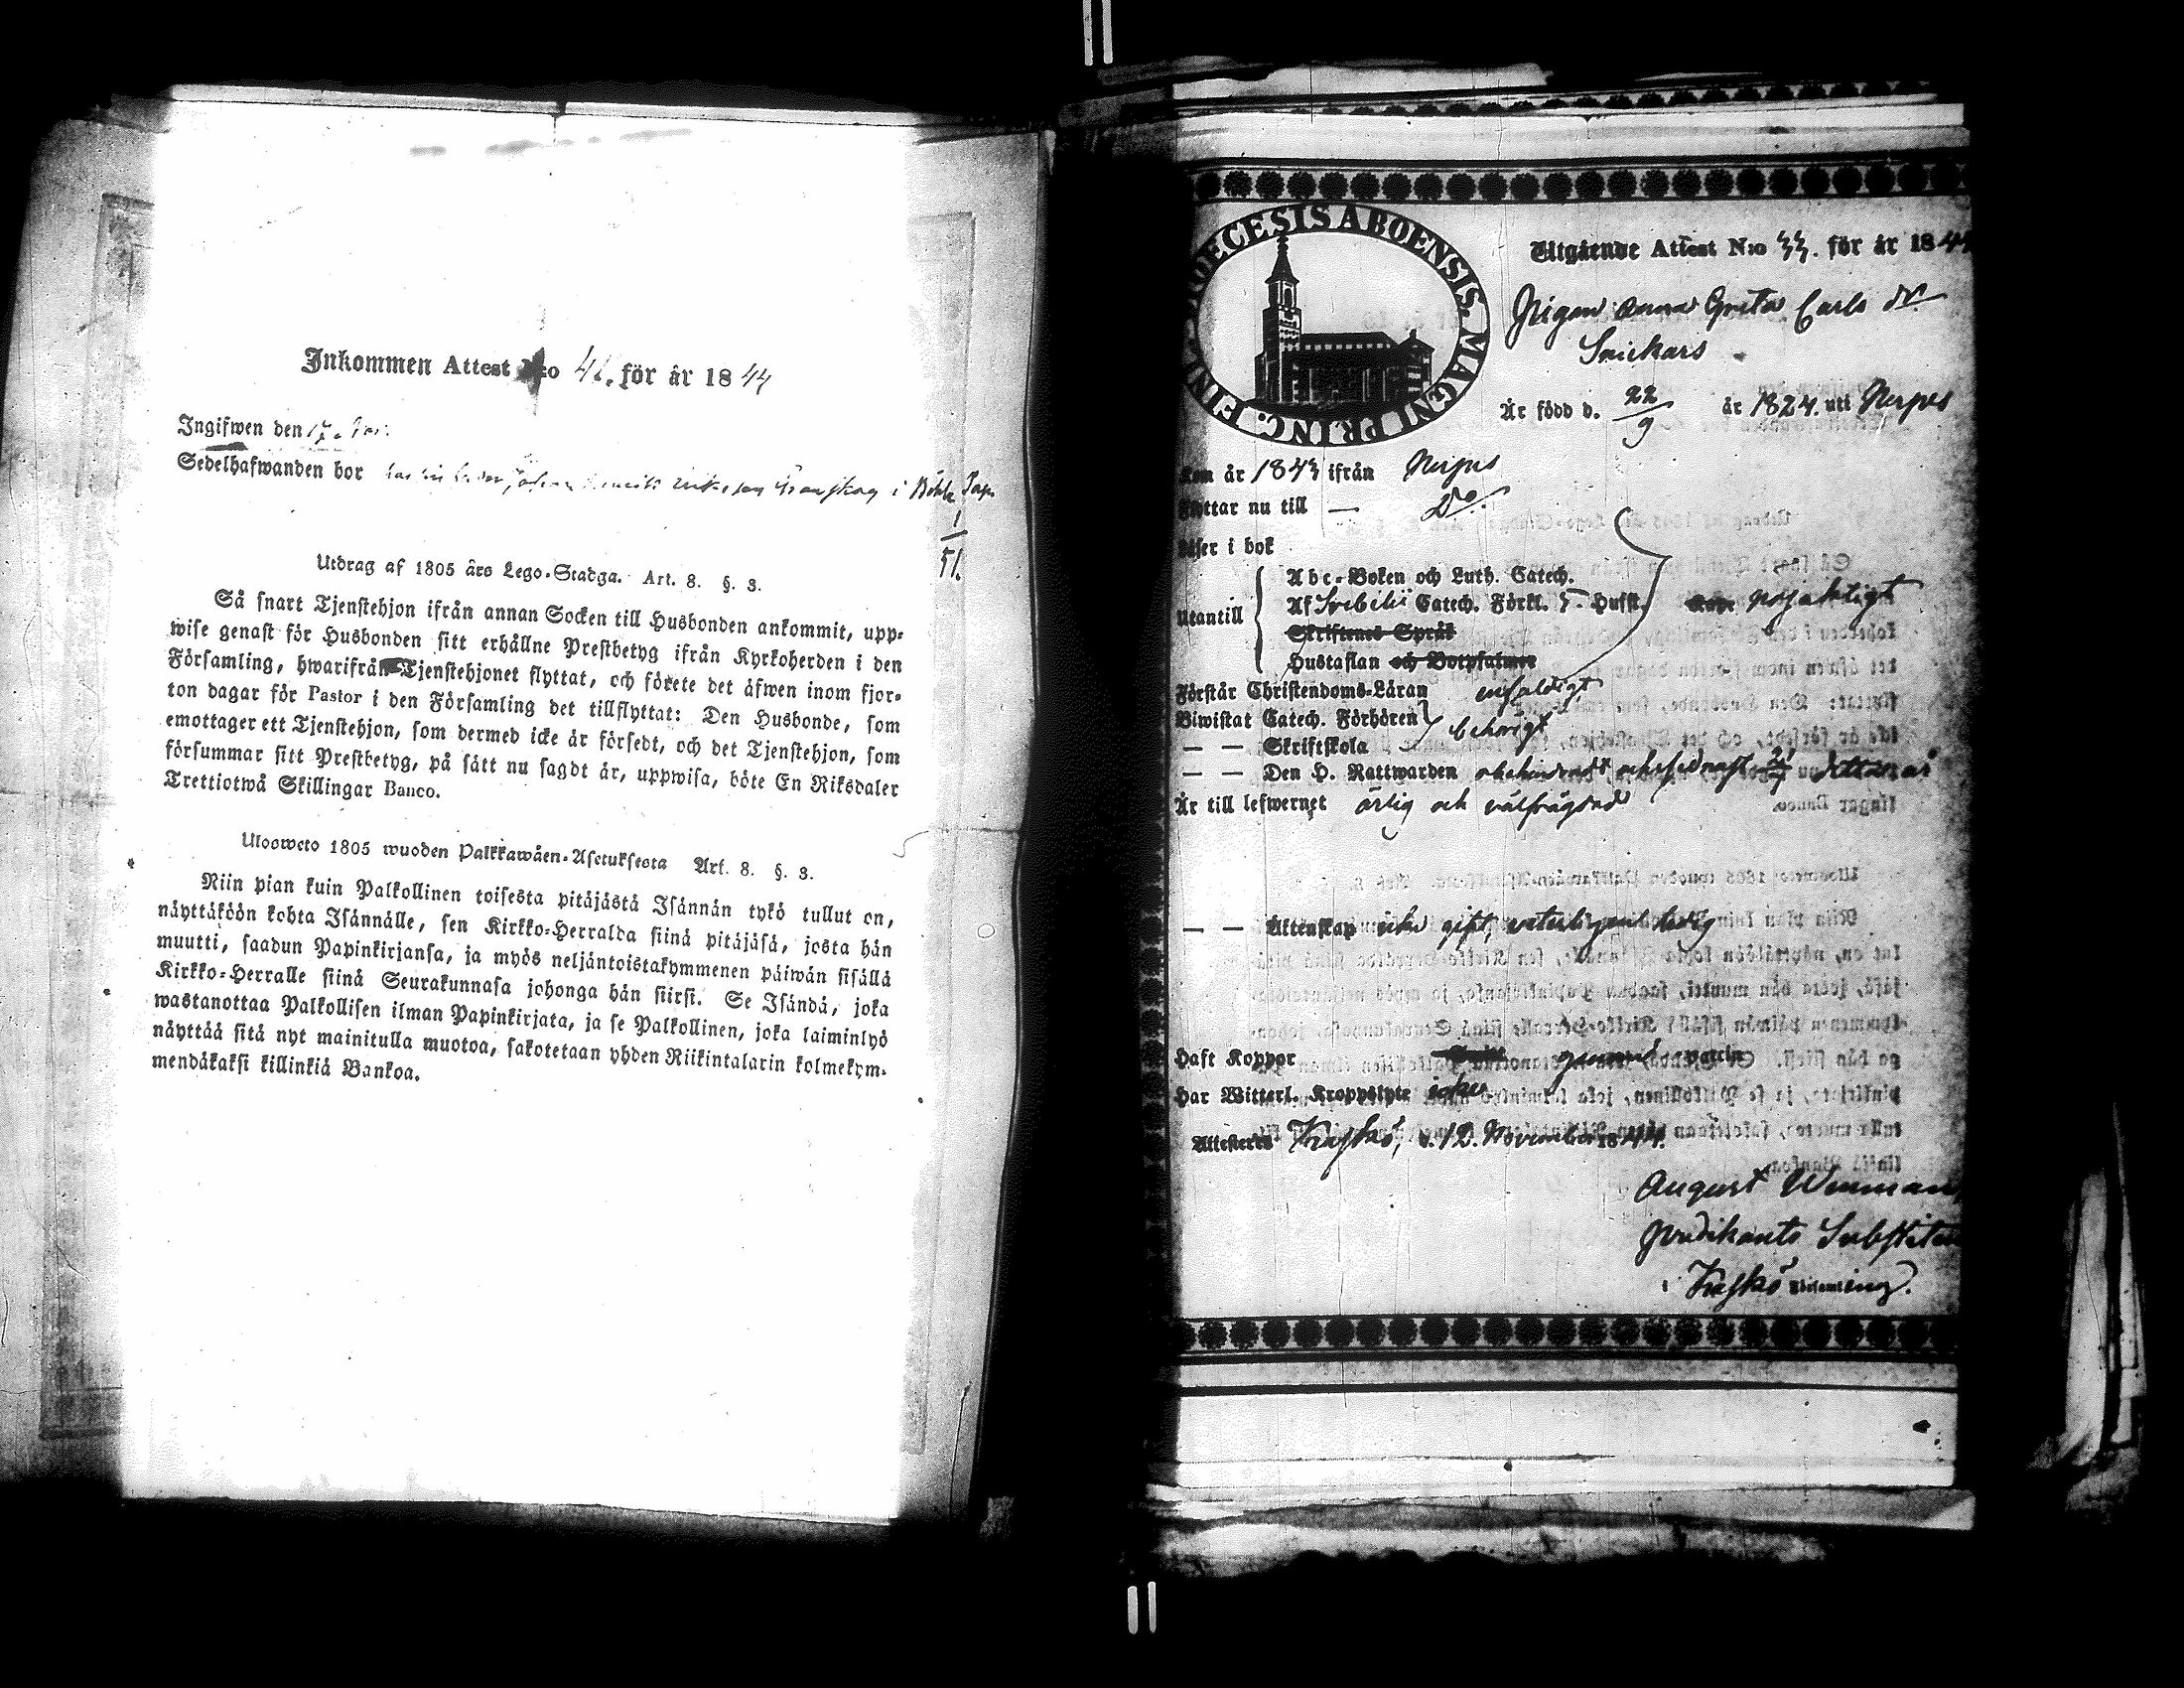 Inkommen Attest N:o 41. för år 1844
Ingifwen den 17.
Sedelhafwanden bor i
1
51.
Utdrag af 1805 års Lego-Stadga. Art. 8. §. 3.
Så snart Tjenstehjon ifrån annan Socken till Husbonden ankommit, upp-
wise genast för Husbonden sitt erhållne Prestbetyg ifrån Kyrkoherden i den
Församling, hwarifrån Tjenstehjonet flyttat, och förete det äfwen inom fjor-
ton dagar för Pastor i den Församling det tillflyttat: Den Husbonde, som
emottager ett Tjenstehjon, som dermed icke är försedt, och det Tjenstehjon, som
försummar sitt Prestbetyg, på sätt nu sagdt är, uppwisa, böte En Riksdaler
Trettiotwå Skillingar Banco.
Ulosweto 1805 wuoden Palkkawäen-Asetuksesta Art. 8. §. 3.
Niin pian kuin Palkollinen toisesta pitäjästä Isännän tykö tullut on,
näyttäköön kohta Isännälle, sen Kirkko-Herralda siinä pitäjäsä, josta hän
muutti, saadun Papinkirjansa, ja myös neljäntoistakymmenen päiwän sisällä
Kirkko-Herralle siinä Seurakunnasa johonga hän siirsi. Se Isändä, joka
wastanottaa Palkollisen ilman Papinkirjata, ja se Palkollinen, joka laiminlyö
näyttää sitä nyt mainitulla muotoa, sakotetaan yhden Riikintalarin kolmekym-
mendäkaksi killinkiä Bankoa.
DIOECESIS ABOENSIS. MAGNI PRINC. FINL.
Utgående Attest N:o 44. för år 1844
Pigan Anna Greta Carls dr.
Snickars
Är född d. 22/9 år 1824. uti Nerpes
Kom år 1843 ifrån Nerpes
Flyttar nu till — Do.
Läser i bok
Utantill
Abc-Boken och Luth. Catech.
Af Svebilii Catech. Förkl. 5. Hufst. nöjaktigt
Skriftenes Språk
Hustaflan och Botpsalmer
Förstår Christendoms-Läran enfaldigt
Biwistat Catech. Förhören behörigt
— — Skriftskola
— — Den H. Nattwarden obehindradt och sednast detta år
Är till lefwernet ärlig och välfrägdad
— — Äktenskap icke gift, veterligen ledig
Haft Koppor
Har Witterl. Kroppslyte icke
Attesteres Kaskö, d. 12. November 1844.
August Wenman,
Predikants Substitut
i Kaskö Församling.